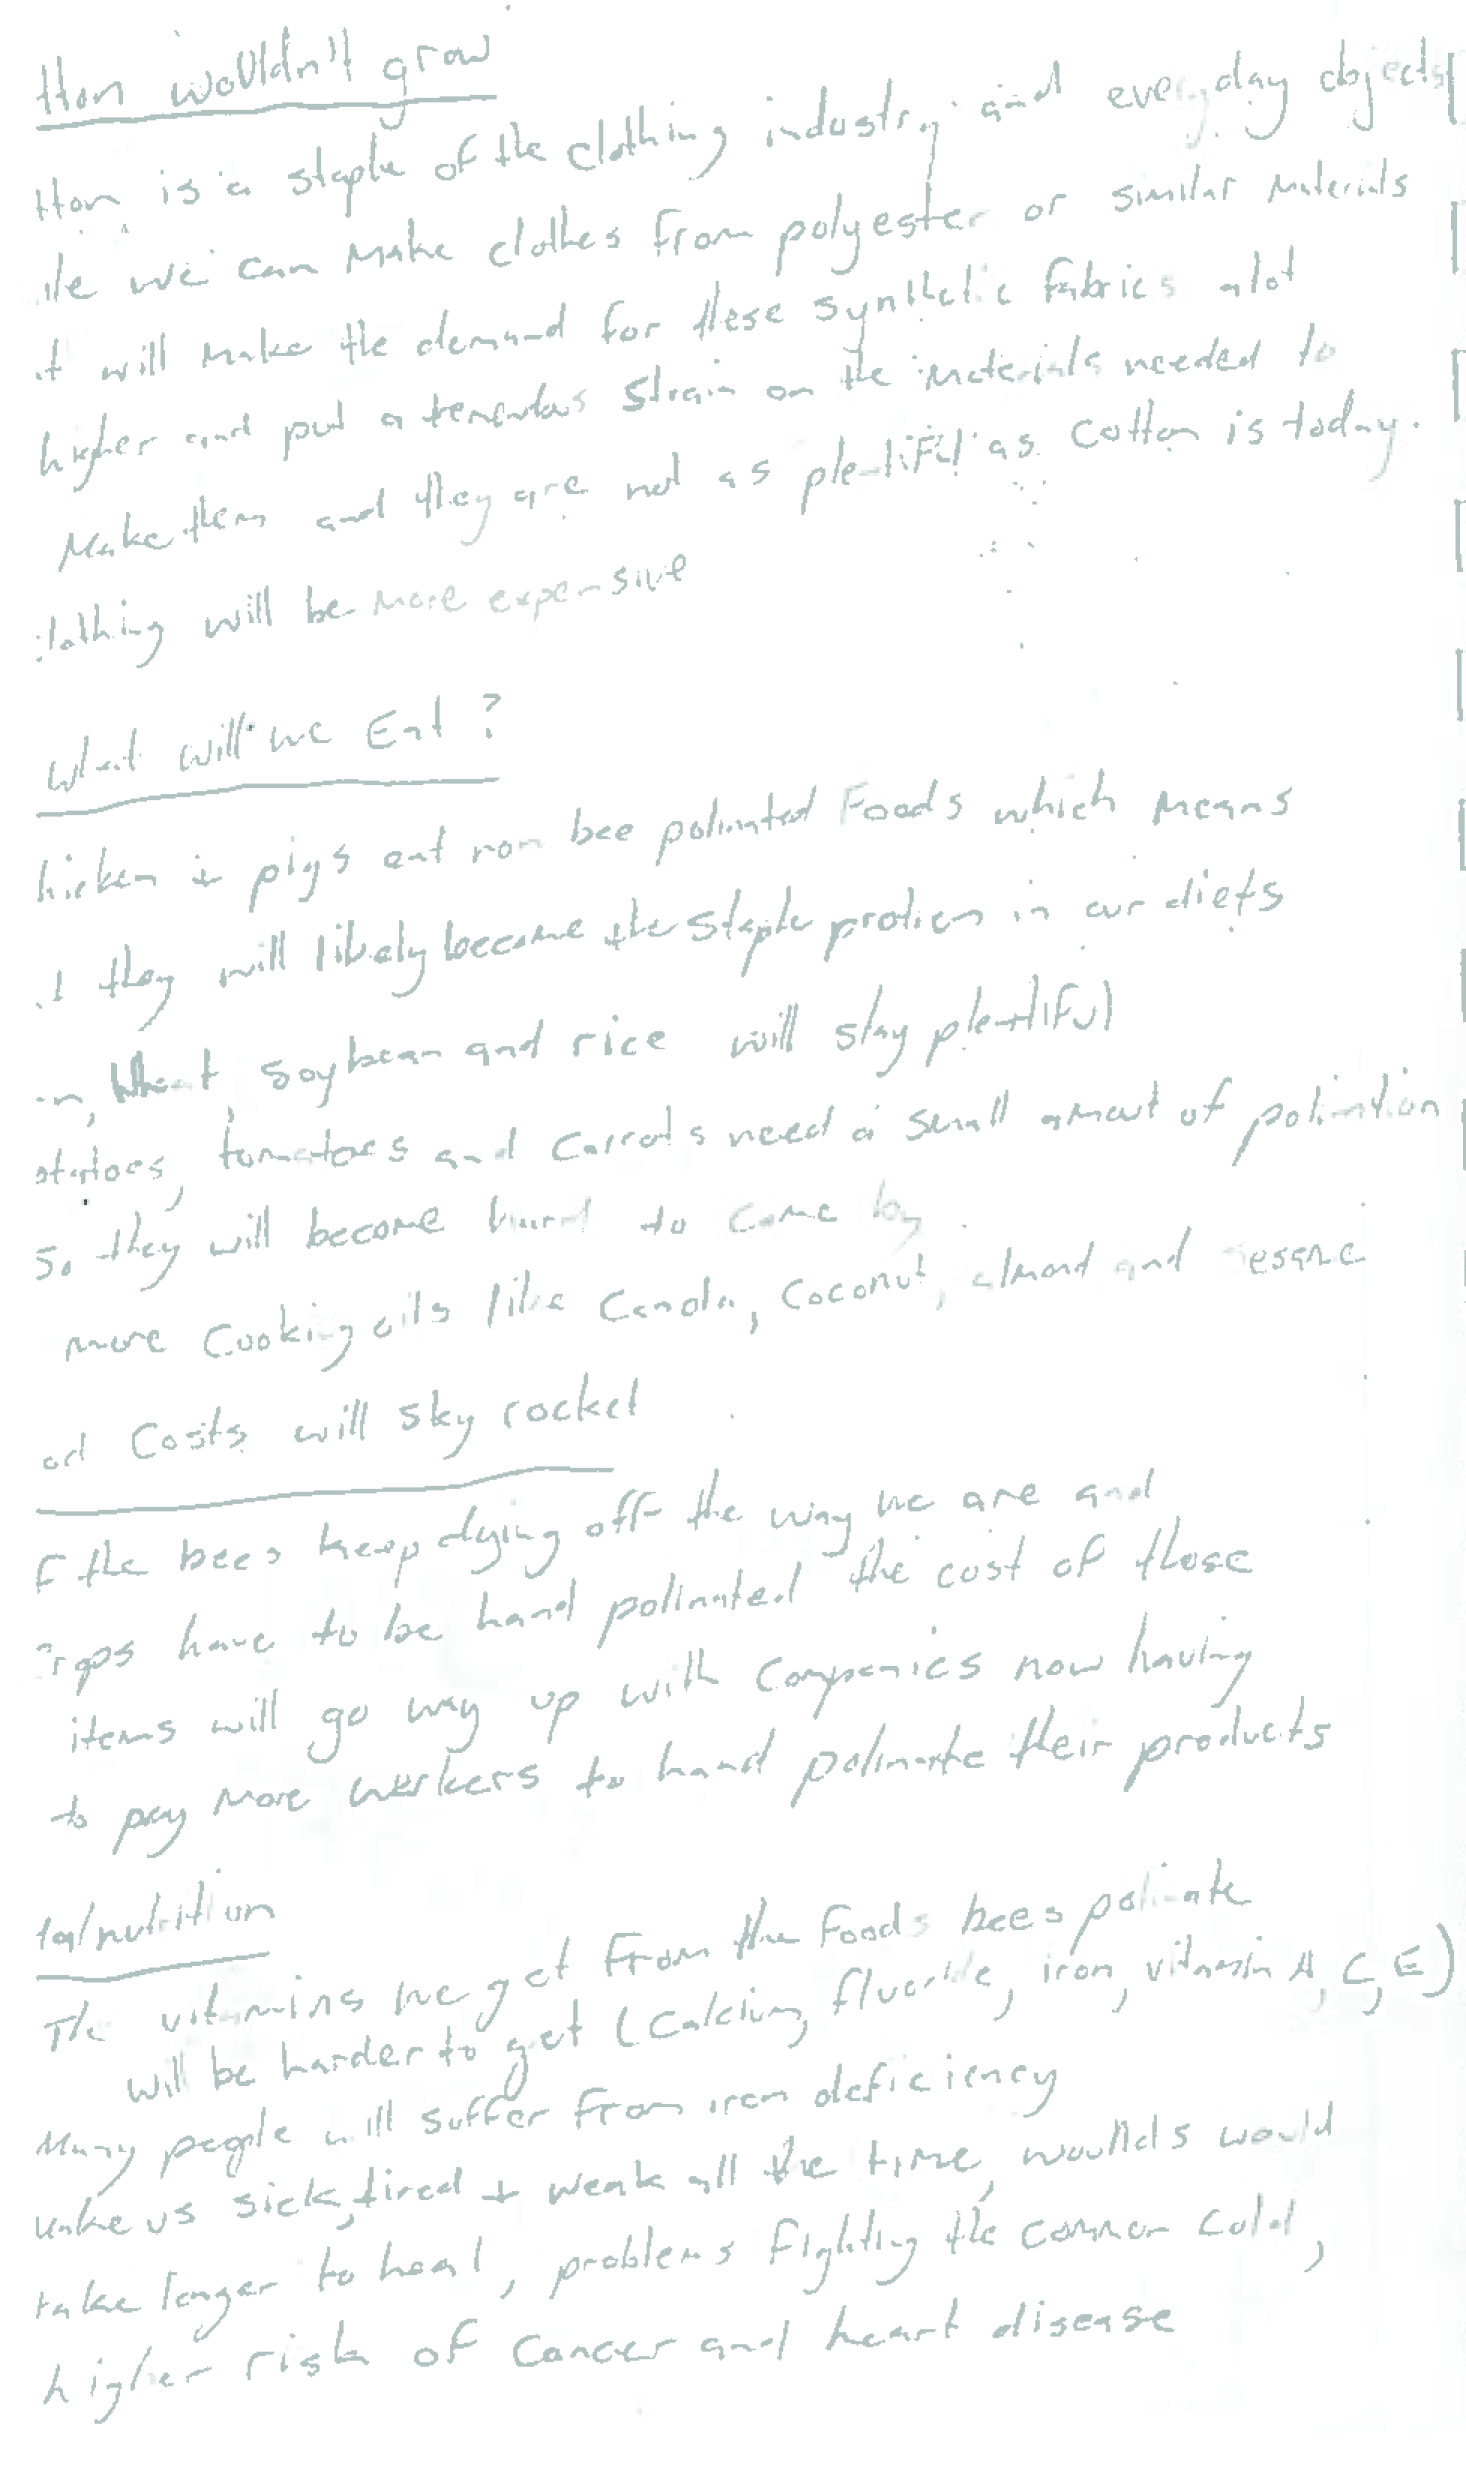 tton wouldn't grow
tton is a staple of the clothing industry and everyday objects
ile we can make clothes from polyester or similar materials
it will make the demand for these synthetic fabrics alot
higher and put a tremendous strain on the materials needed to
make them and they are not as plentiful as cotton is today.
clothing will be more expensive
What will we Eat?
hicken + pigs eat non bee polinated Foods which means
t they will likely become the staple protien in our diets
rn, Wheat, soybean and rice will stay plentiful
otatoes, tomatoes and carrots need a small amout of polination
so they will become hard to come by
more cooking oils like Canola, Coconut, almond and sesame
od Costs will sky rocket
f the bees keep dying off the way we are and
crops have to be hand polinated the cost of those
items will go way up with companies now having
to pay more workers to hand polinate their products
alnutrition
The vitamins we get from the Foods bees polinate
will be harder to get (Calcium, fluoride, iron, vitamin A, C, E)
Many people will suffer from iron deficiency
make us sick, tired + weak all the time, wounds would
take longer to heal, problems fighting the common cold,
higher risk of cancer and heart disease